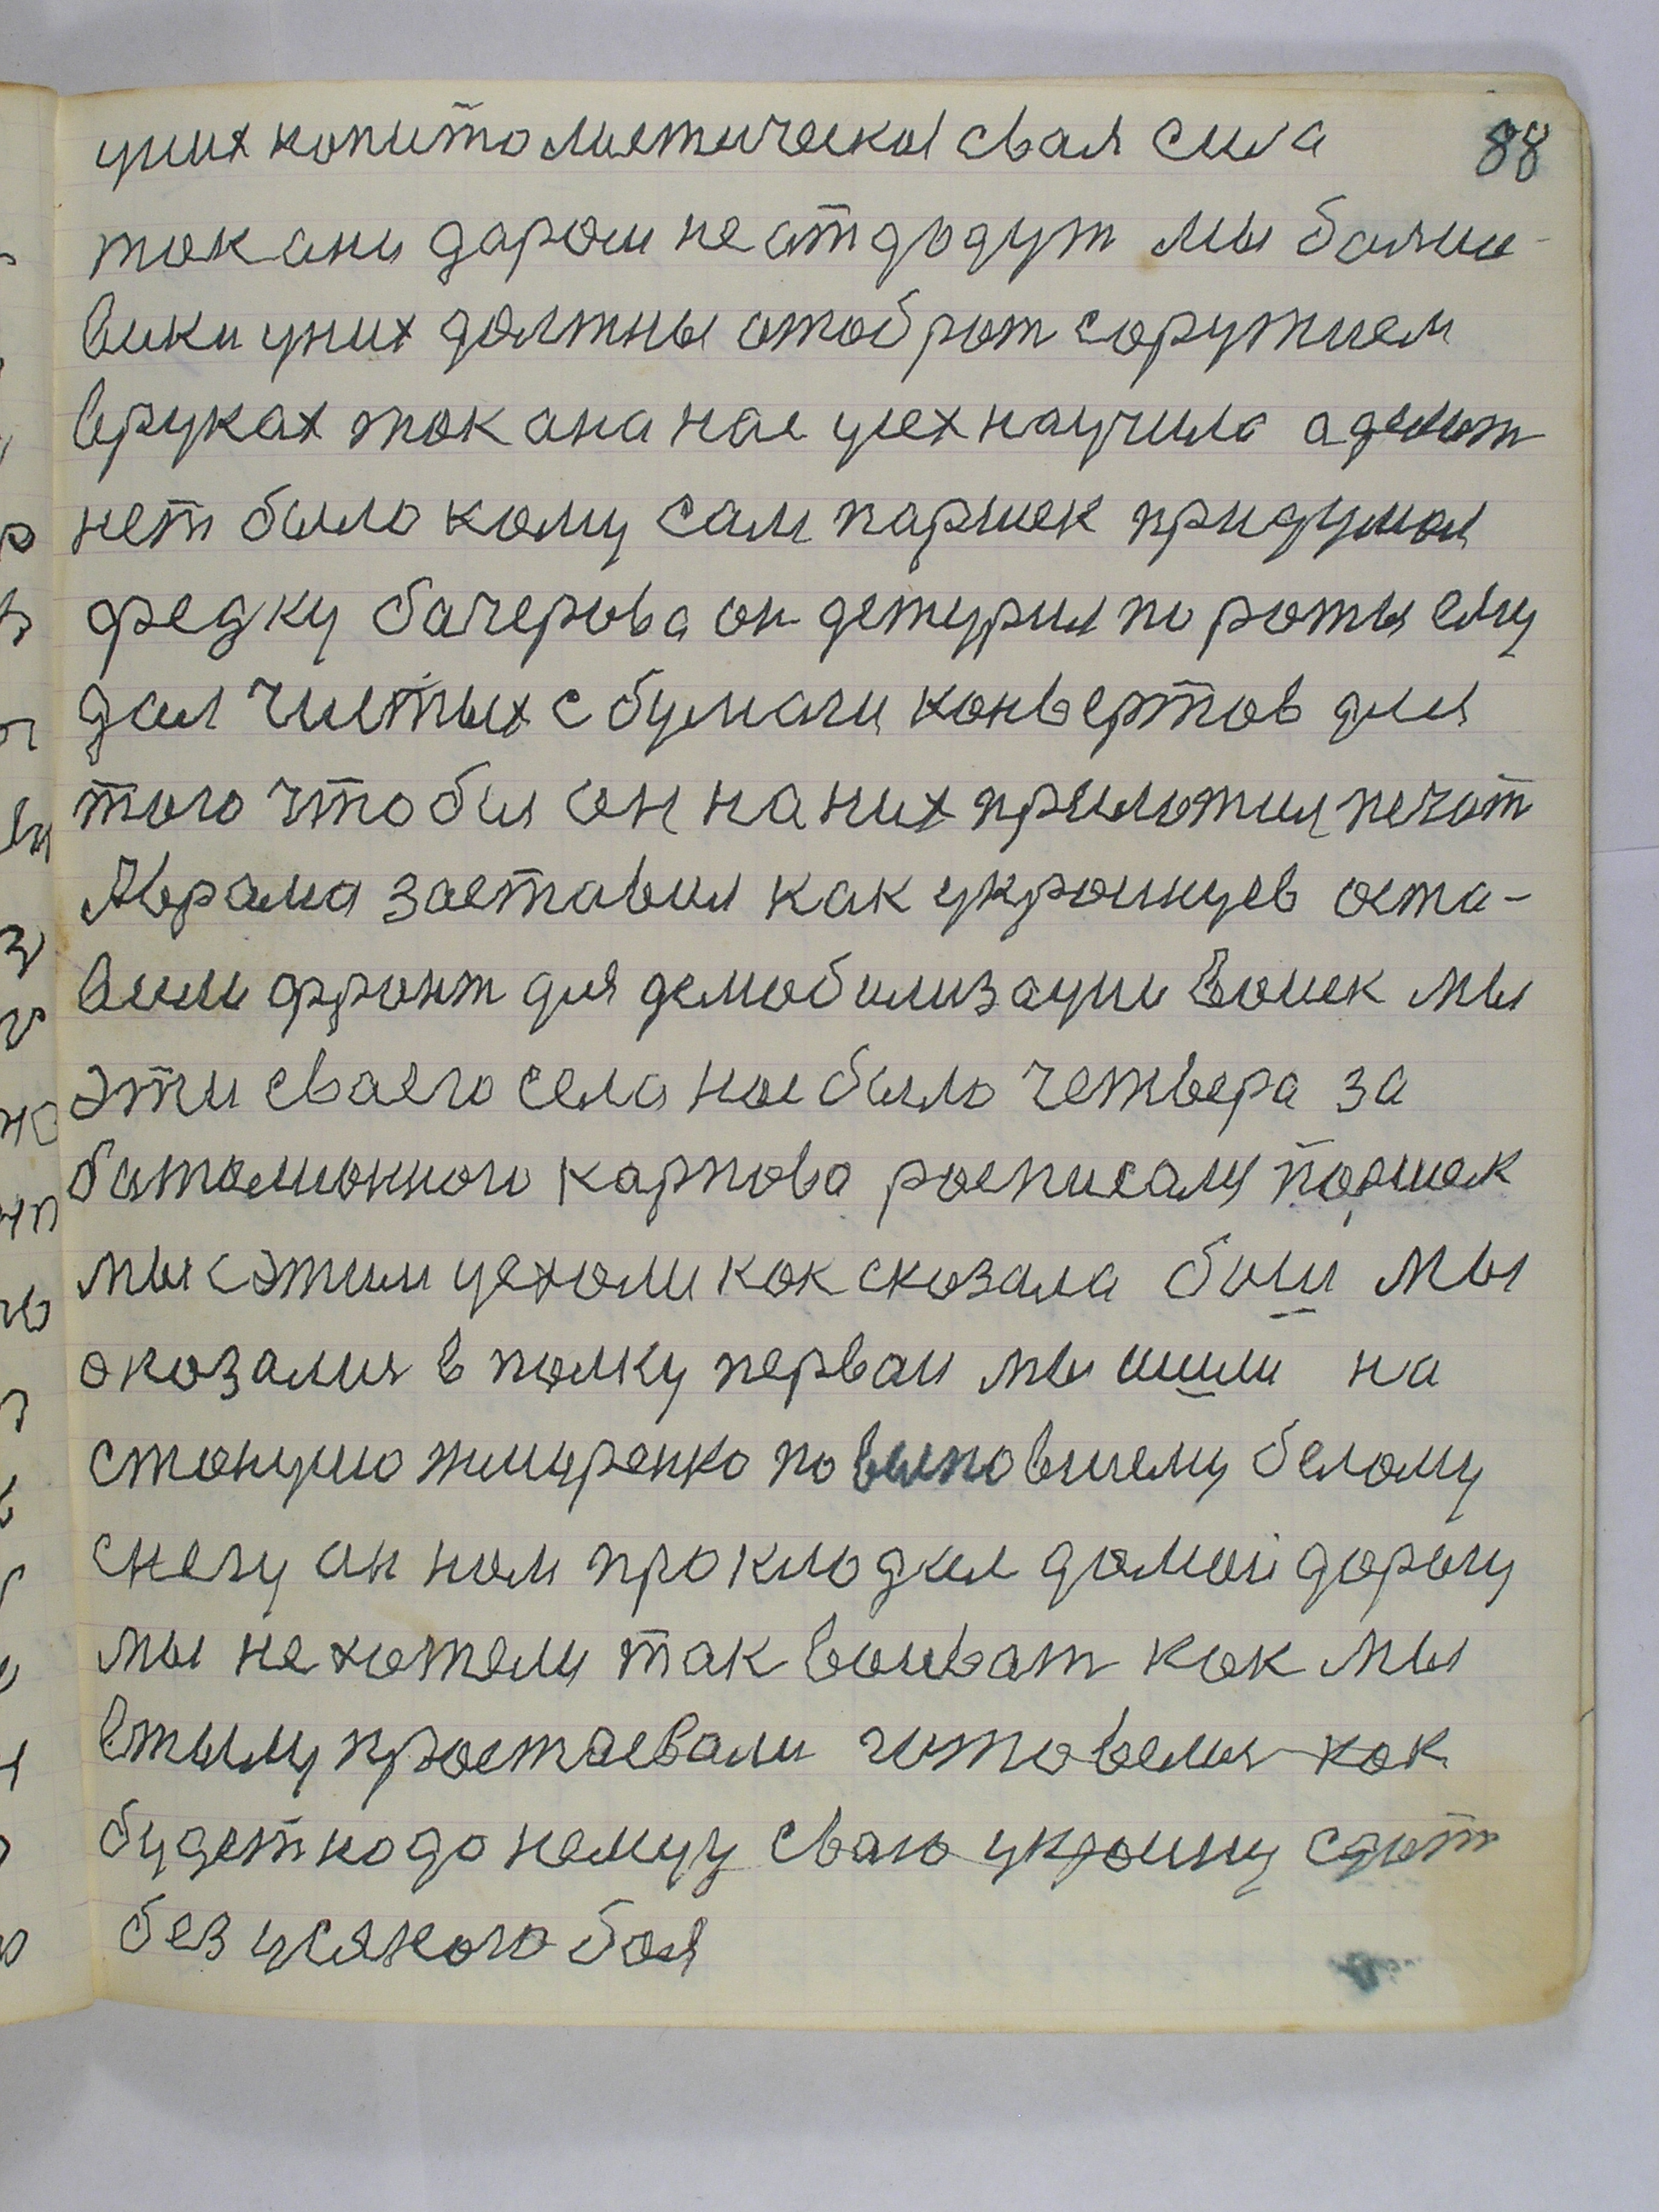 уних копитолистическоя свая сила 88
ток ани даром не отдодут мы болше-
вики уних должны отоброт соружием
вруках ток она нас усех научила а делот
нет было кому сам паршек придумал
федку бачерова он дежурил по роты ему
дал чистых с бумаги конвертов для
того чтобы он на них приложил печот
Аврама заставил как укроинцев оста-
вили фронт для демобилизации воиск мы
эти сваего села нас было четвера за
батолионного карпова росписалц поршек
мы сэтим уехоли кок сказала бы и мы
окозалися в полку первам мы шли на
станцию жмеренко по выповшему белому
снегу он нам проклодал дамой дорогу
мы нехотели так воиват кок мы
втылу простаевали готовелися кок
будет надо немцу сваю укроину сдат
без усякого боя